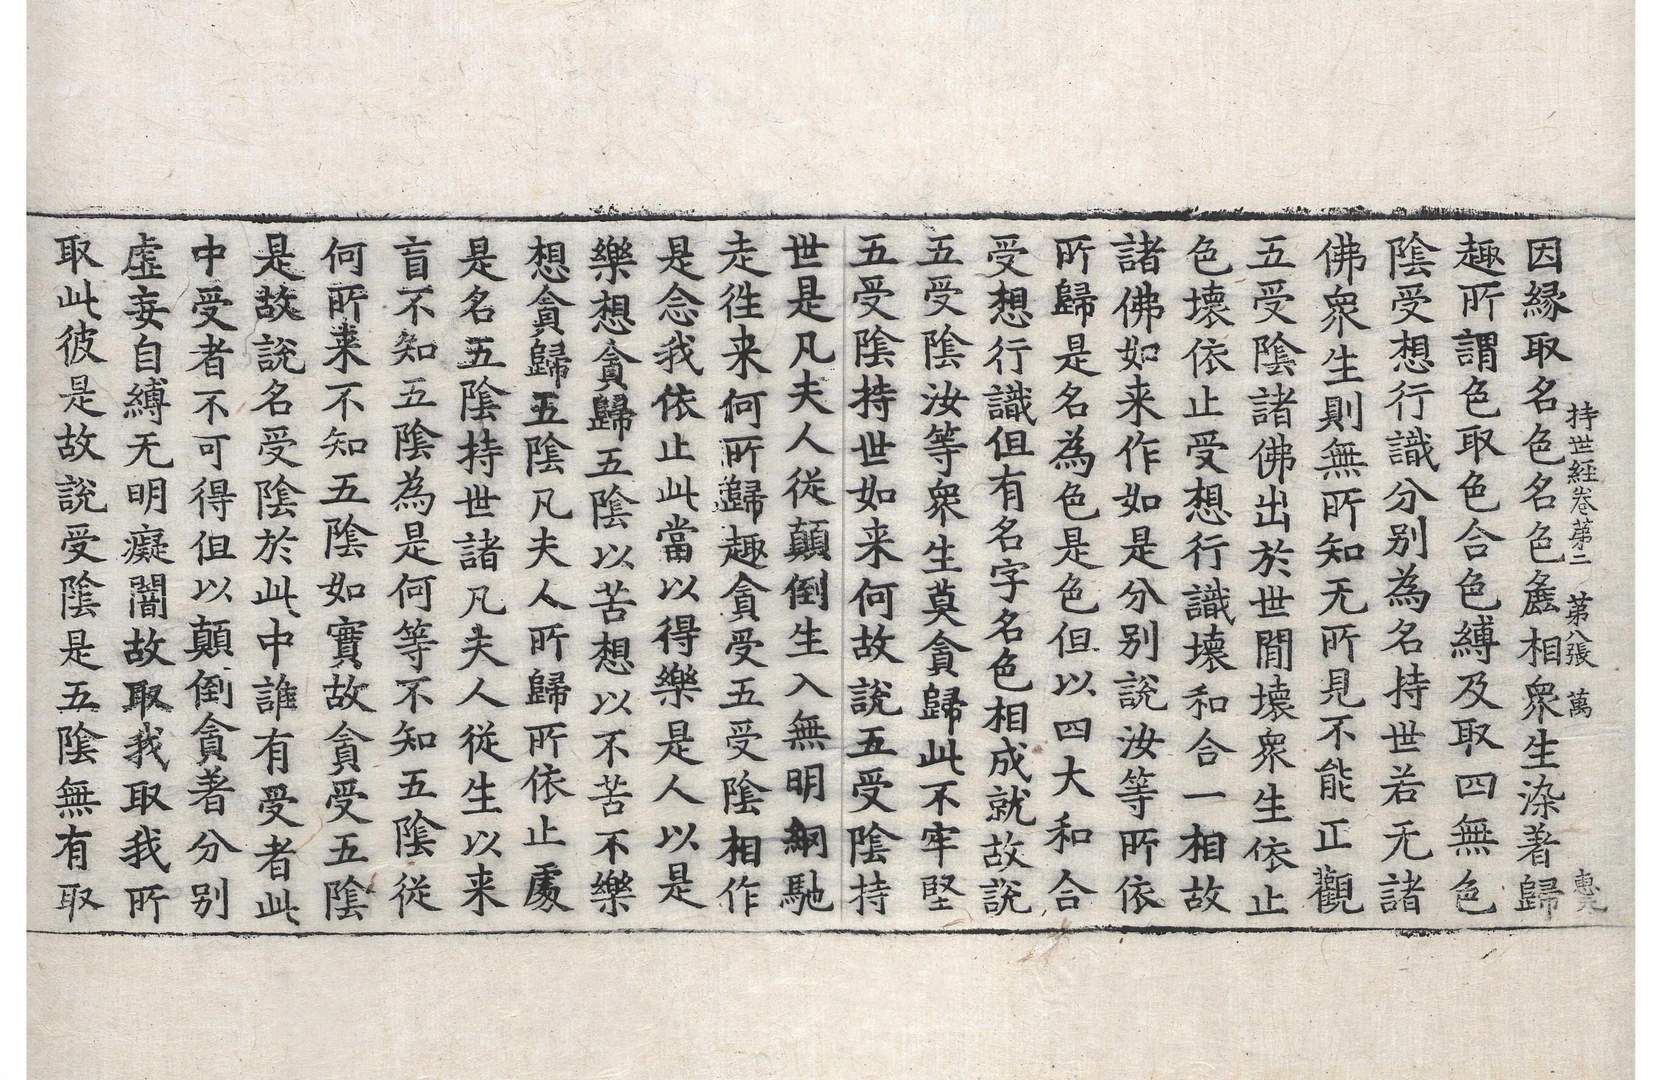 因縁取名色名色麁相衆生染著歸
持世経卷第二 第八張 萬
趣所謂色取色合色縛及取四無色
陰受想行識分别為名持世若无諸
佛衆生則無所知无所見不能正觀
五受陰諸佛出於世間壊衆生依止
色壊依止受想行識壊和合一相故
諸佛如来作如是分别說汝等所依
所歸是名為色是色但以四大和合
受想行識但有名字名色相成就故說
五受陰汝等衆生莫貪歸此不牢堅
五受陰持世如来何故說五受陰持
世是凡夫人従顛倒生入無明網馳
走徃来何所歸趣貪受五受陰相作
是念我依止此當以得樂是人以是
樂想貪歸五陰以苦想以不苦不樂
想貪歸五陰凡夫人所歸所依止處
是名五陰持世諸凡夫人従生以来
盲不知五陰為是何等不知五陰従
何所来不知五陰如實故貪受五陰
是故說名受陰於此中誰有受者此
中受者不可得但以顛倒貪著分别
虛妄自縛无明癡闇故取我取我所
取此彼是故說受陰是五陰無有取